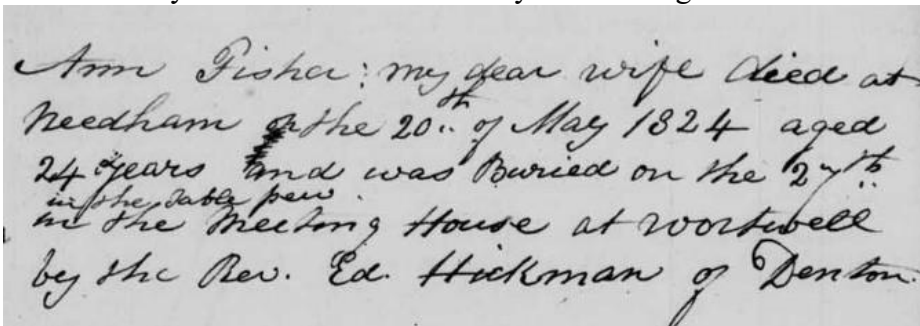 Ann Fisher: my dear wife died at
Needham on the 20th of May 1824 aged
24 years and was Buried on the 27th
in the Table pew
in the Meeting House at Wortwell
by the Rev. Ed. Hickman of Denton.